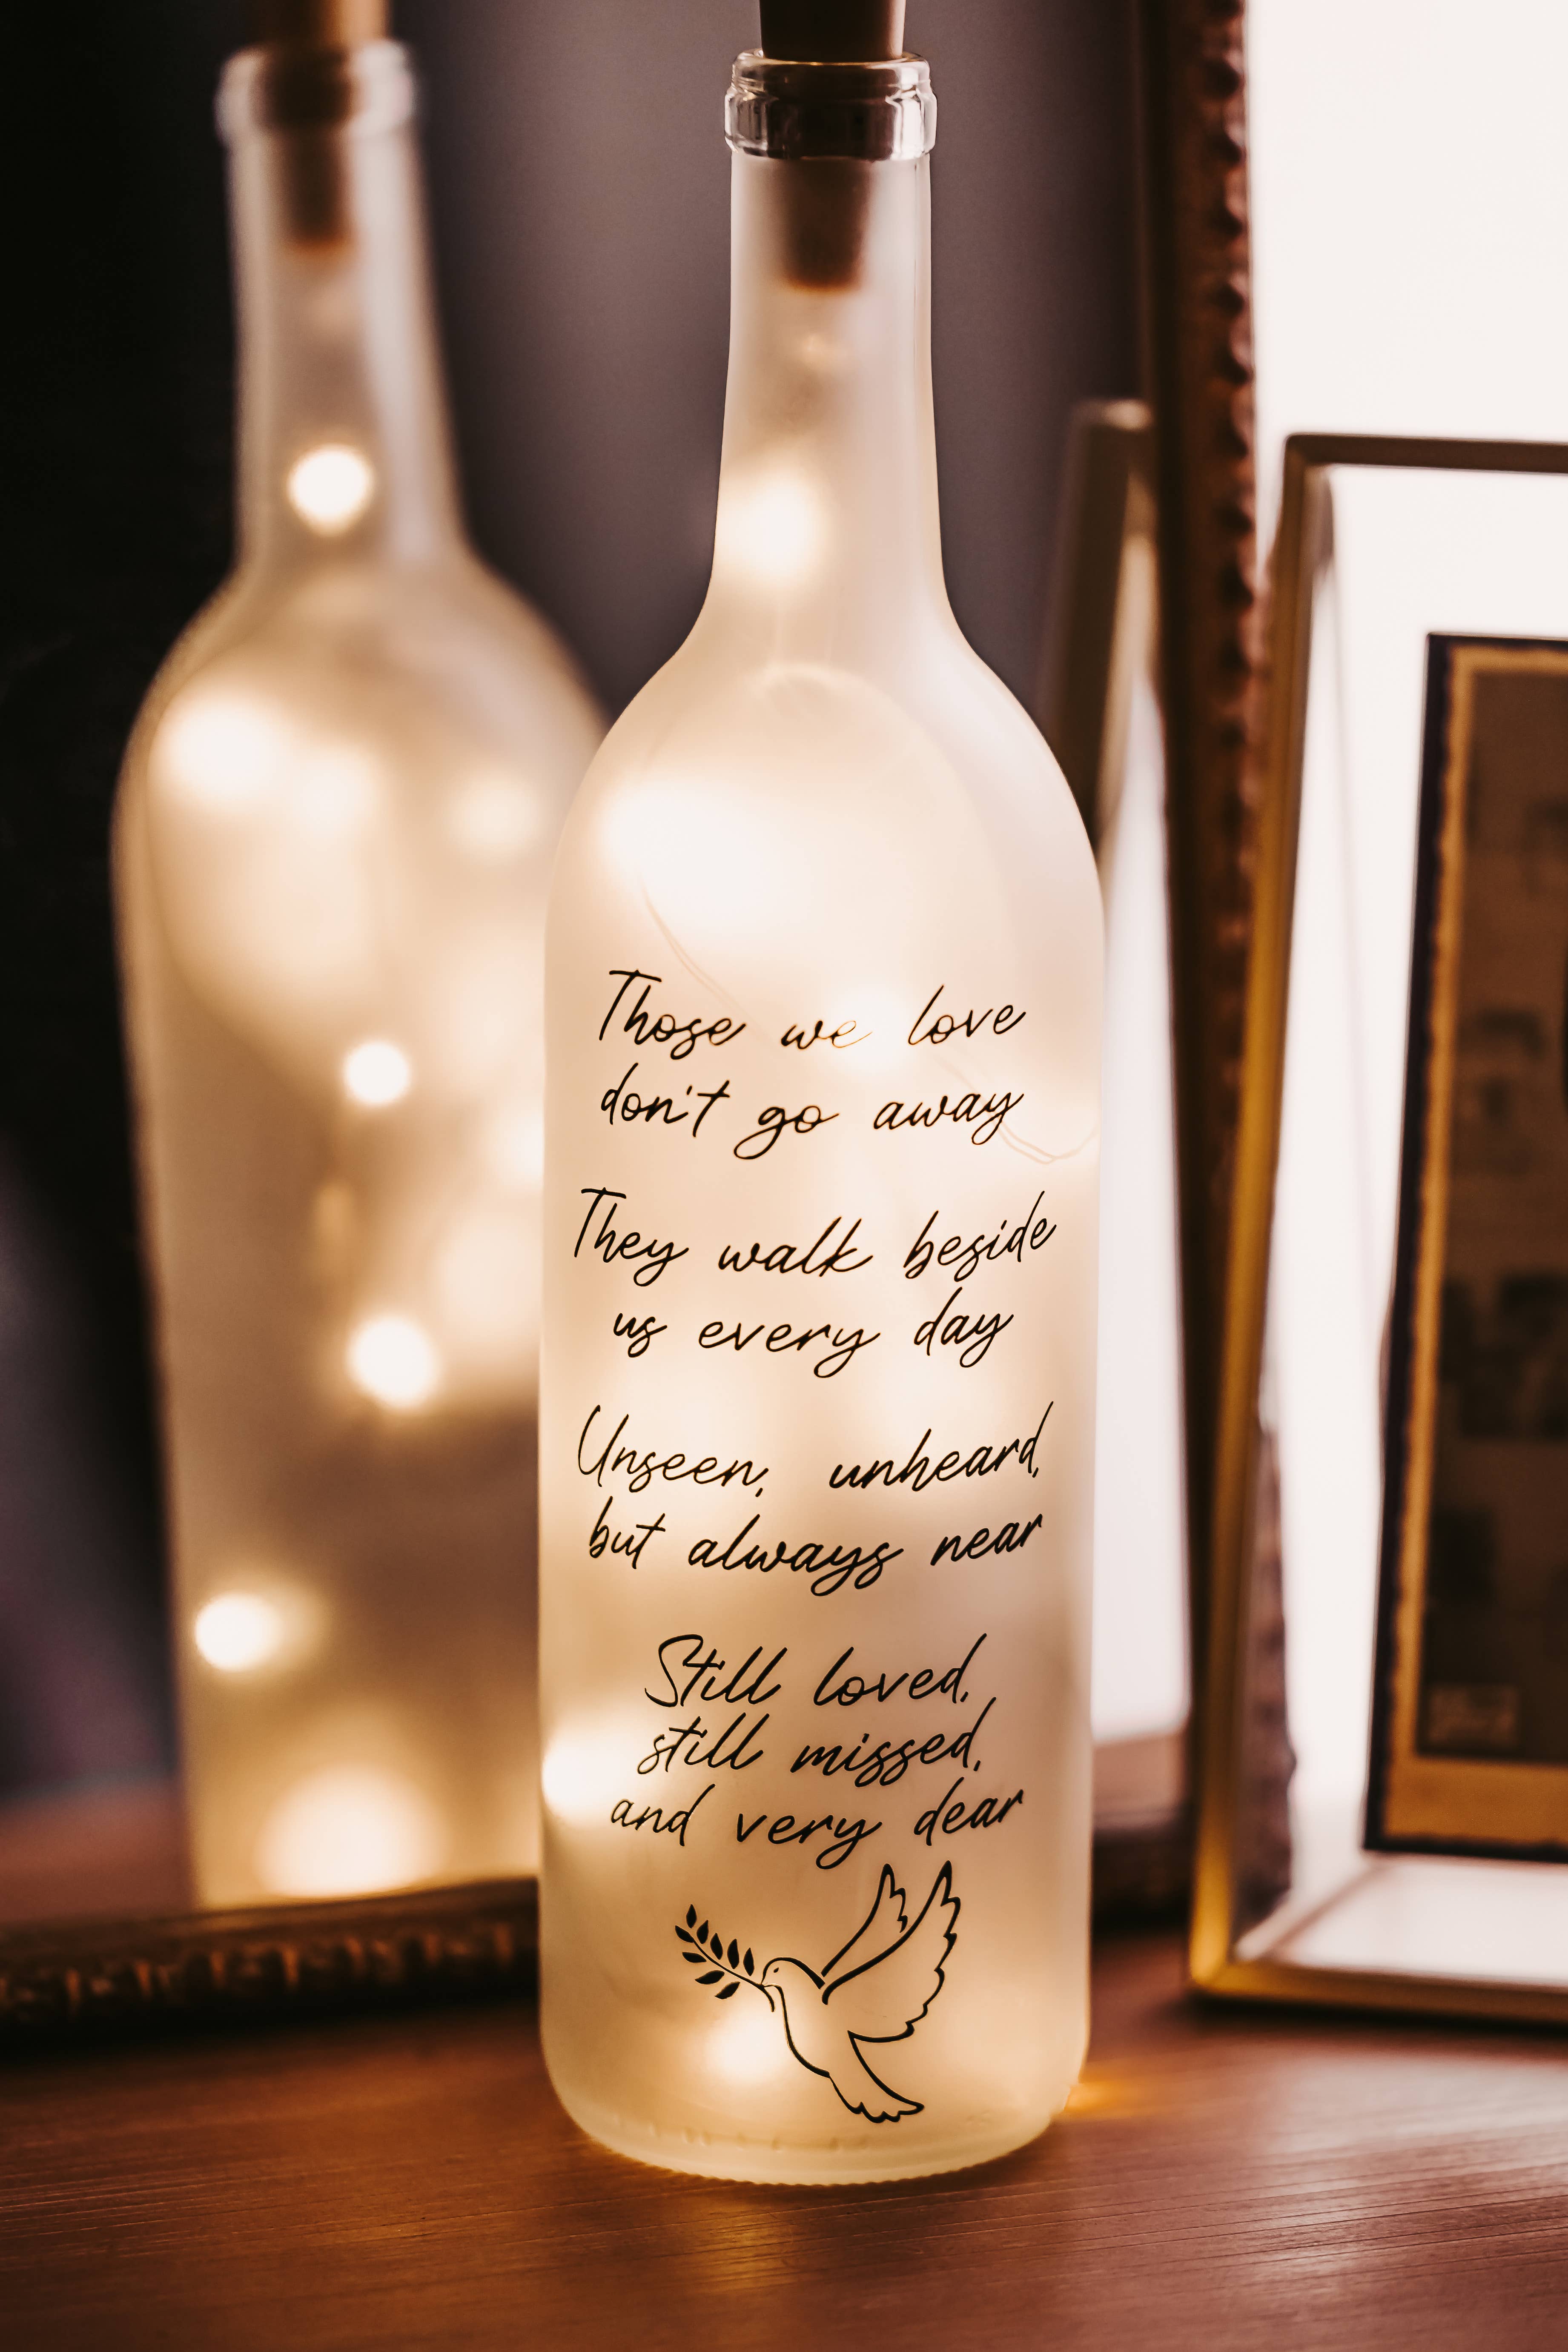 Those we love
don't go away
They walk beside
us every day
Unseen, unheard,
but always near
Still loved,
still missed,
and very dear